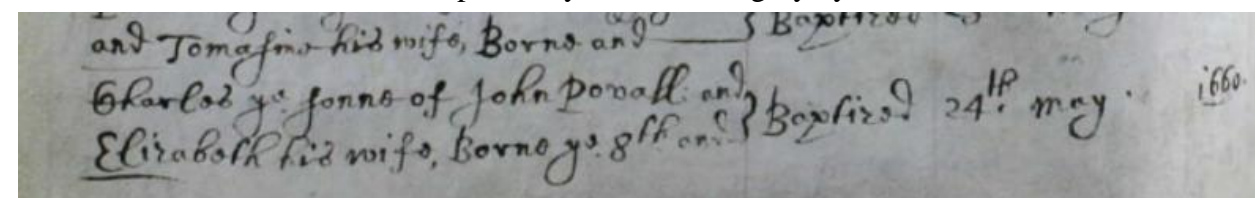 and Tomasine his wife, Borne and Baptized
Charles ye sonne of John Povall and
Elizabeth his wife, Borne ye 8th and } Baptized 24th may. 1660.